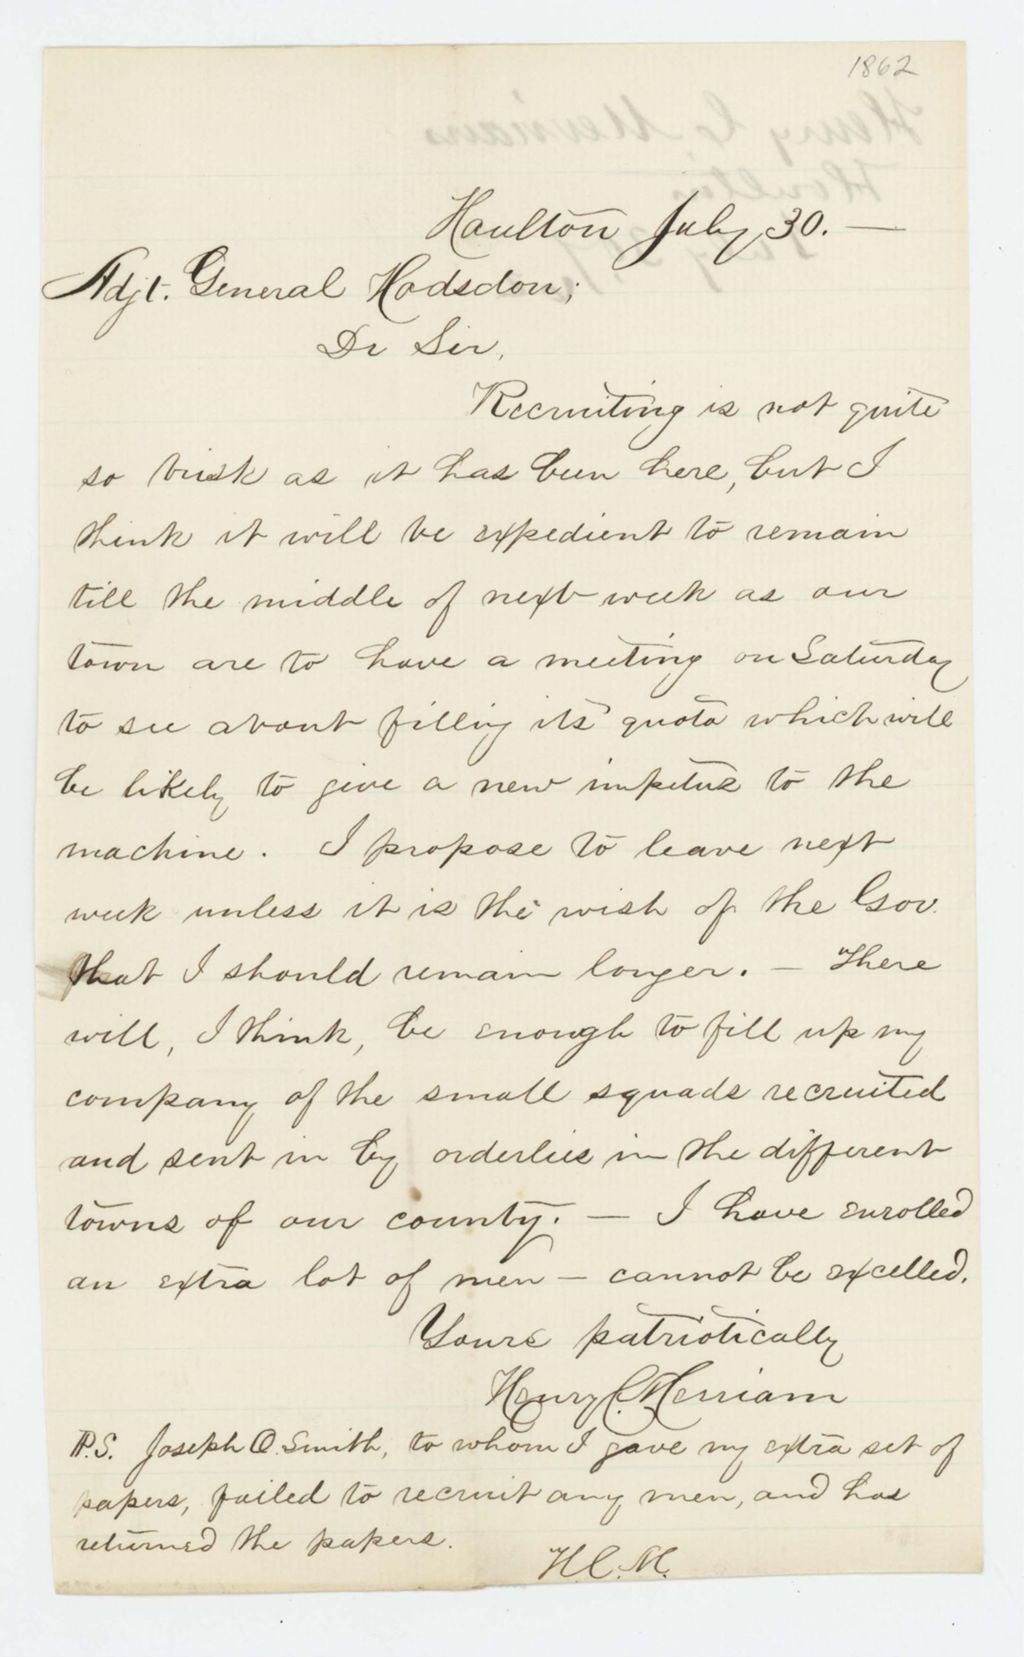 1862
Houlton July 30. —
Adjt. General Hodsdon;
Dr Sir,
Recruiting is not quite
so brisk as it has been here, but I
think it will be expedient to remain
till the middle of next week as our
town are to have a meeting on Saturday
to see about filling its quota which will
be likely to give a new impetus to the
machine. I propose to leave next
week unless it is the wish of the Gov.
that I should remain longer. — There
will, I think, be enough to fill up my
company of the small squads recruited
and sent in by orderlies in the different
towns of our county. — I have enrolled
an extra lot of men — cannot be excelled.
Yours patriotically
Henry C. Merriam
P.S. Joseph O. Smith, to whom I gave my extra set of
papers, failed to recruit any men, and has
returned the papers.
H.C.M.